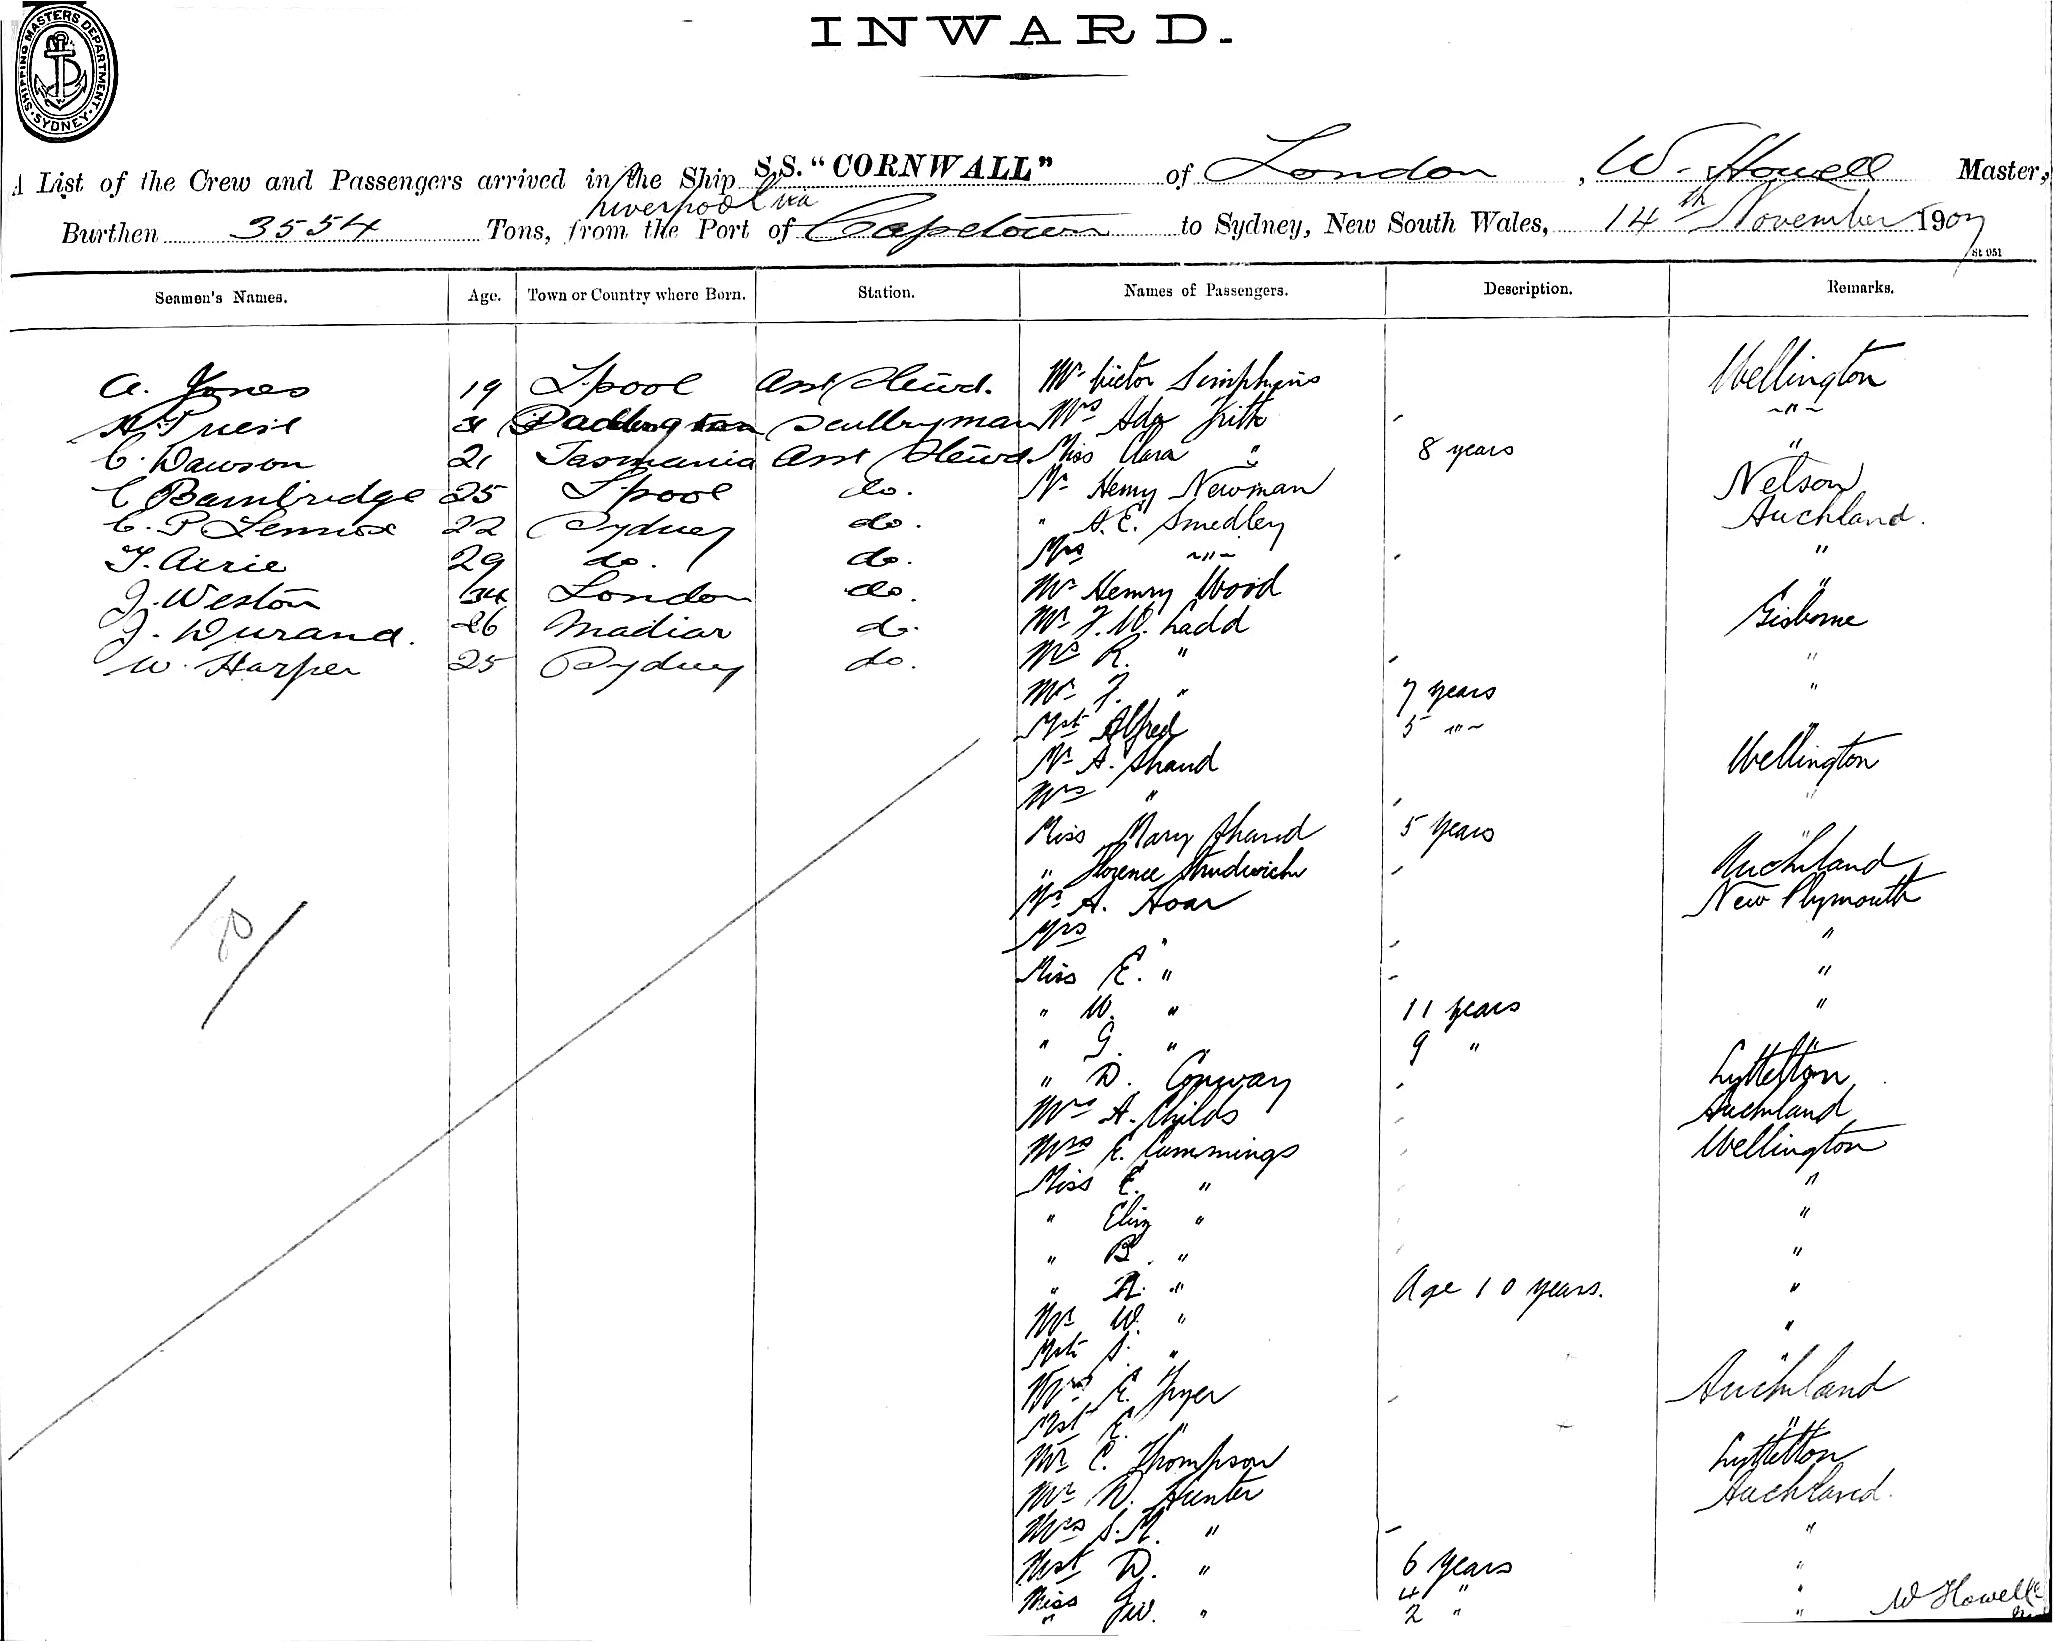 SHIPPING MASTERS DEPARTMENT SYDNEY
INWARD.
A List of the Crew and Passengers arrived in the Ship S.S. "CORNWALL" of London, W. Howell Master,
Liverpool via
Burthen 3554 Tons, from the Port of Capetown to Sydney, New South Wales, 14th November 1907
St 051
Seamen's Names. Age. Town or Country where Born. Station. Names of Passengers. Description. Remarks.
A. Jones 19 L'pool Asst Stewd. Mr Victor Simpkins Wellington
31 Paddington Scullryman Mrs Ada Frith "
C. Dawson 21 Tasmania Asst Steward Miss Clara " 8 years "
C Bambridge 25 L'pool do. Mr Henry Newman Nelson
C. P Lennox 22 Sydney do. " A. E. Smedley Auckland.
T. Airie 29 do. do. Mrs " "
J. Weston 34 London do. Mr Henry Wood "
J. Durand. 26 Madiar do. Mr F. W. Ladd Gisborne
W. Harper 25 Sydney do. Mrs R. " "
Mr F. " 7 years "
Mst Alfred 5 "
Mr A. Shand Wellington
Mrs " "
Miss Mary Shand 5 years "
" Florence Strudwick Auckland
Mr A. Hoar New Plymouth
Mrs " "
Miss E. " "
" W. " 11 years "
" G. " 9 "
" D. Conway Lyttelton
Mrs A. Childs Auckland
Mrs E. Cummings Wellington
Miss E. " "
" Eliz " "
" B. " "
" A. " Age 10 years. "
Mr W. " "
Mst S. " "
Mrs E. Fryer Auckland
Mst E. " "
Mr C. Thompson Lyttelton
Mr D. Hunter Auckland.
Mrs S. M. " "
Mst D. " 6 years "
Miss 4 " "
" " 2 " "
W Howell